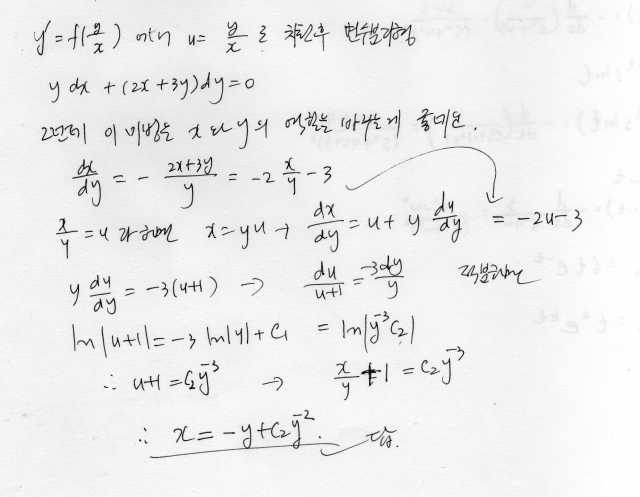 y' = f(y/x) 에서 u = y/x 로 치환후 변수분리형
y dx + (2x+3y)dy = 0
그런데 이 미방은 x와 y의 역할을 바꾸는게 좋네요.
dx/dy = - (2x+3y)/y = -2 x/y - 3
x/y = u 라하면 x = yu → dx/dy = u + y du/dy = -2u-3
y du/dy = -3(u+1) → du/(u+1) = -3dy/y 적분하면
ln|u+1| = -3 ln|y| + C₁ = ln|y⁻³C₂|
∴ u+1 = C₂y⁻³ → x/y + 1 = C₂y⁻³
∴ x = -y + C₂y⁻². 답.